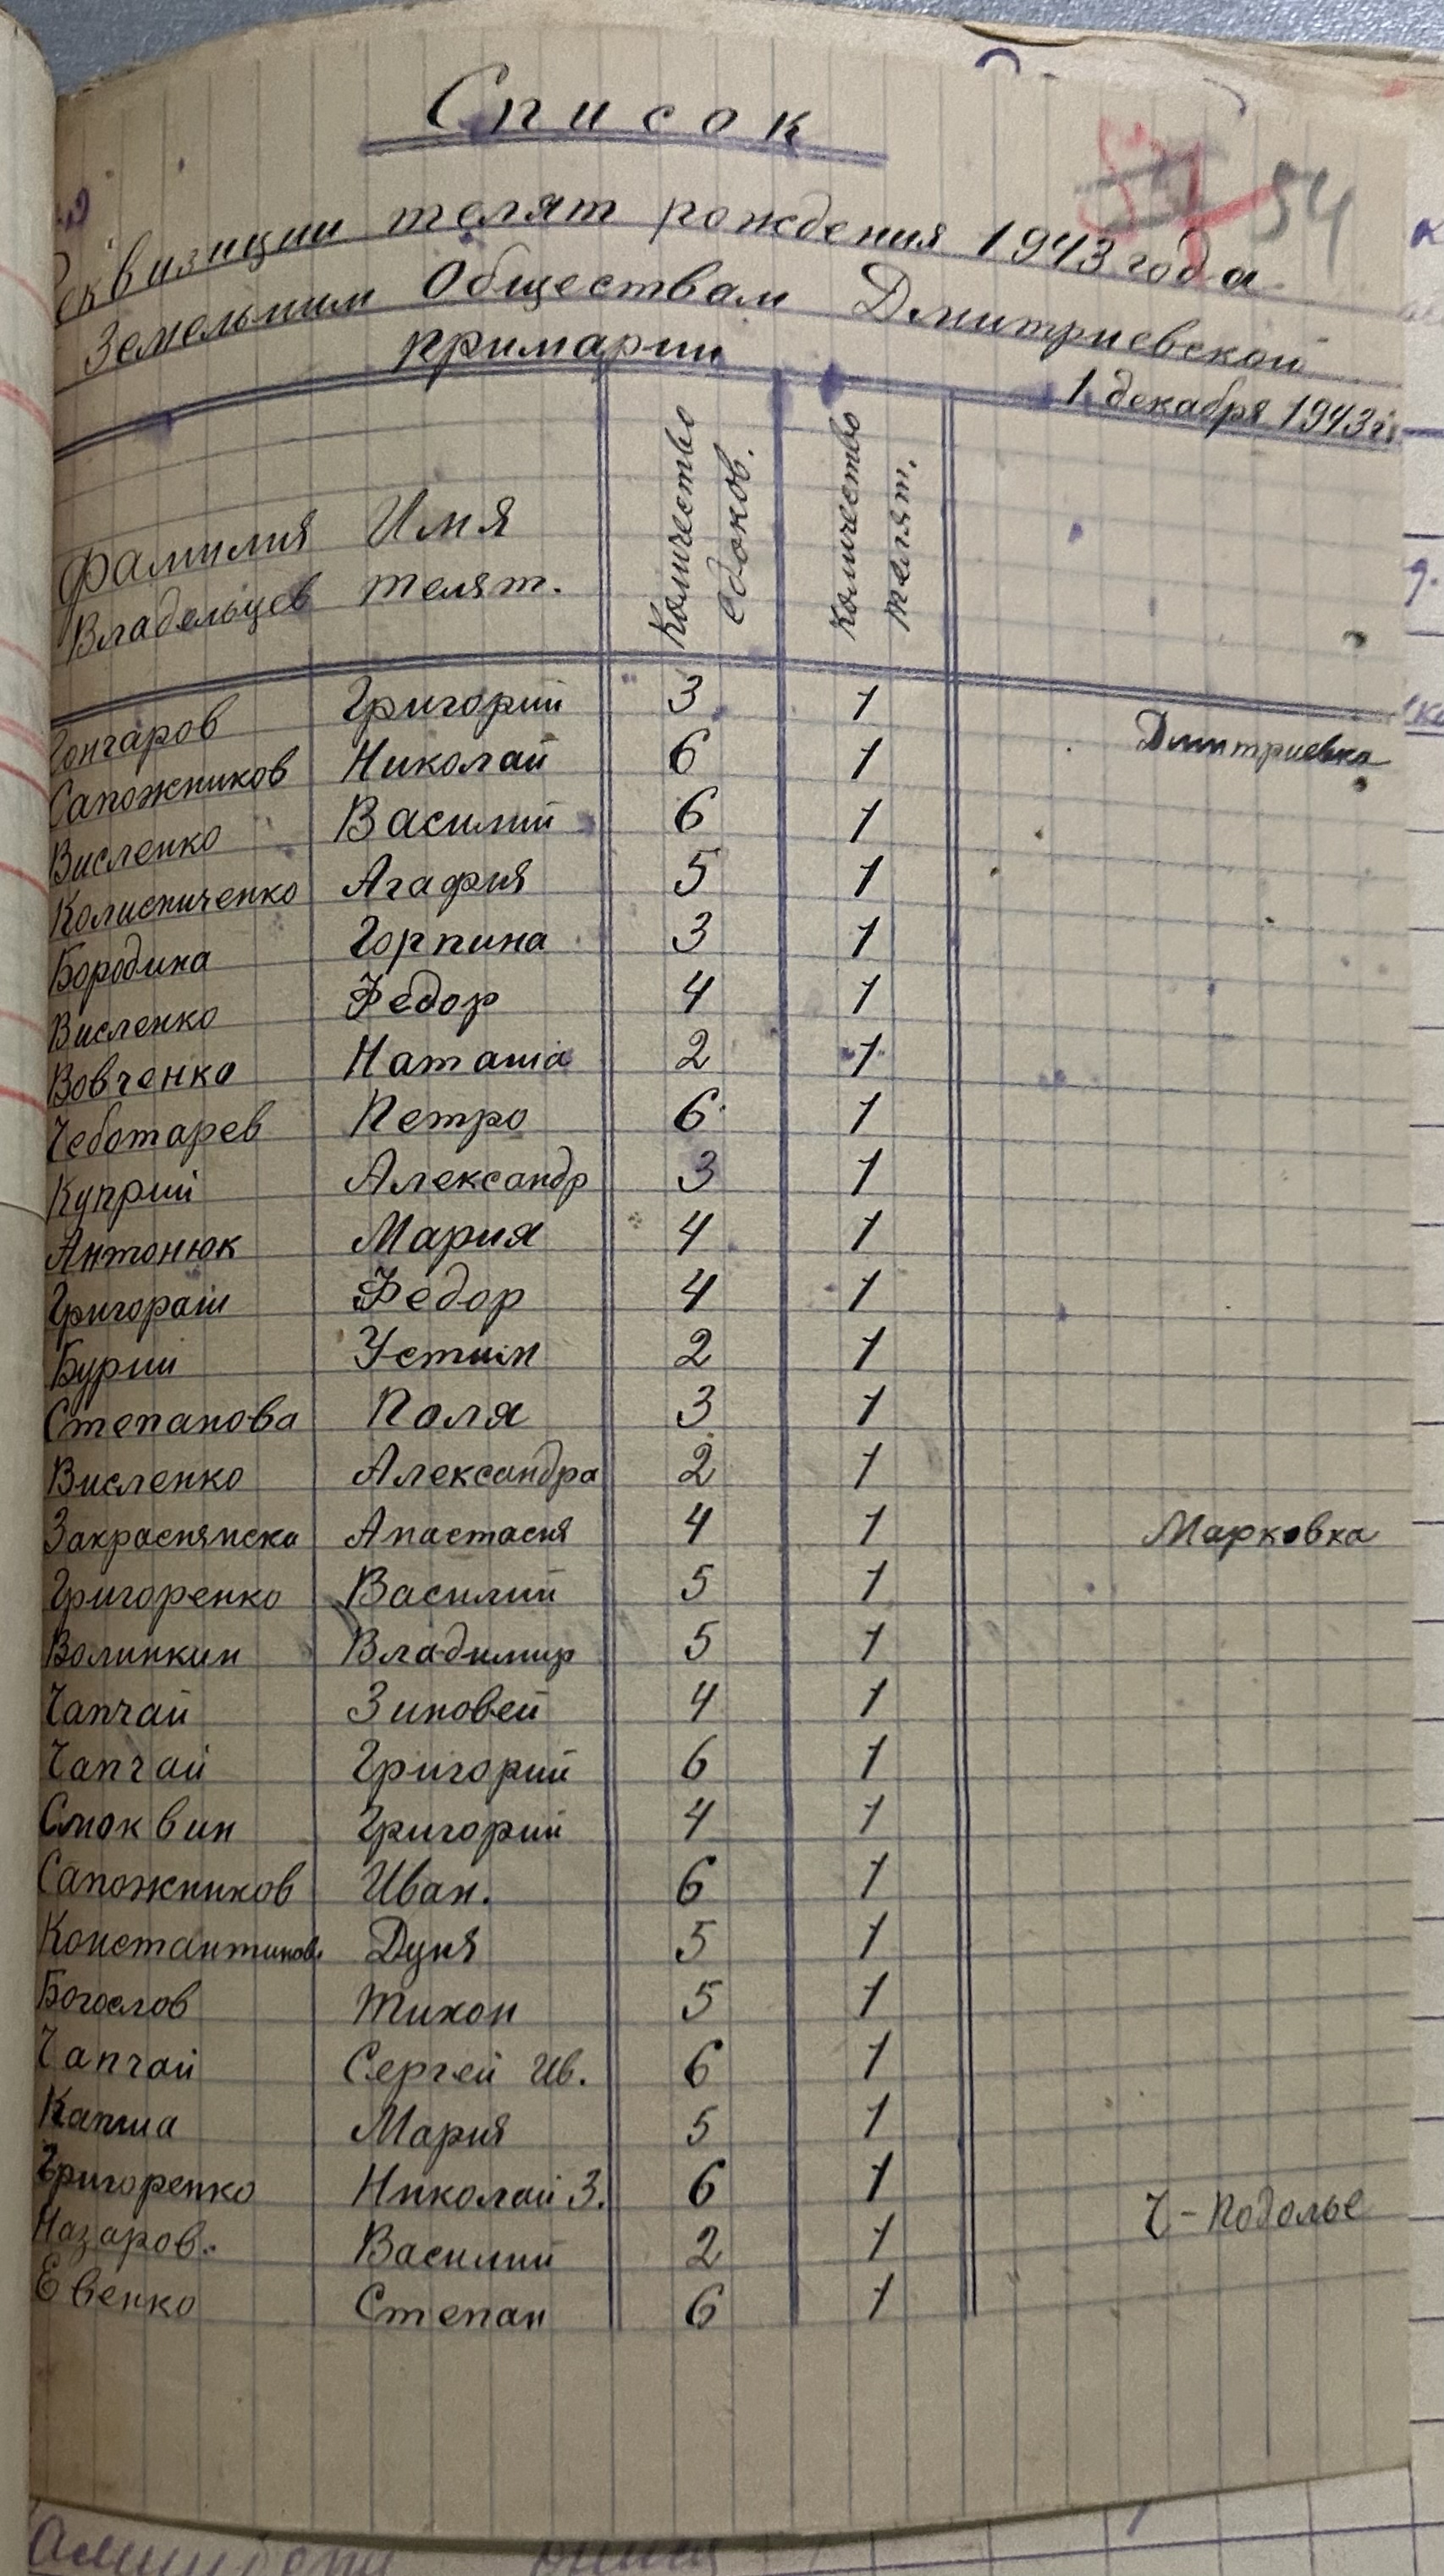 Список
54
Реквизиции телят рождения 1943 года
Земельним Обществам Дмитриевской
примарии
1 декабря 1943 г.
Фамилия Владельцев Имя телят. Количество едоков. Количество телят.
Гончаров Григорий 3 1 Дмитриевка
Сапожников Николай 6 1
Висленко Василий 6 1
Колисниченко Агафия 5 1
Бородина Горпина 3 1
Висленко Федор 4 1
Вовченко Наташа 2 1
Чеботарев Петро 6 1
Куприй Александр 3 1
Антонюк Мария 4 1
Григораш Федор 4 1
Бурии Устин 2 1
Степанова Поля 3 1
Висленко Александра 2 1
Закраснянска Анастасия 4 1 Марковка
Григоренко Василий 5 1
Волинкин Владимир 5 1
Чапчай Зиновей 4 1
Чапчай Григорий 6 1
Смоквин Григорий 4 1
Сапожников Иван. 6 1
Константинов Дуня 5 1
Богослов Тихон 5 1
Чапчай Сергей Ив. 6 1
Капша Мария 5 1
Григоренко Николай З. 6 1 Ч-Подолье
Назаров. Василий 2 1
Евенко Степан 6 1